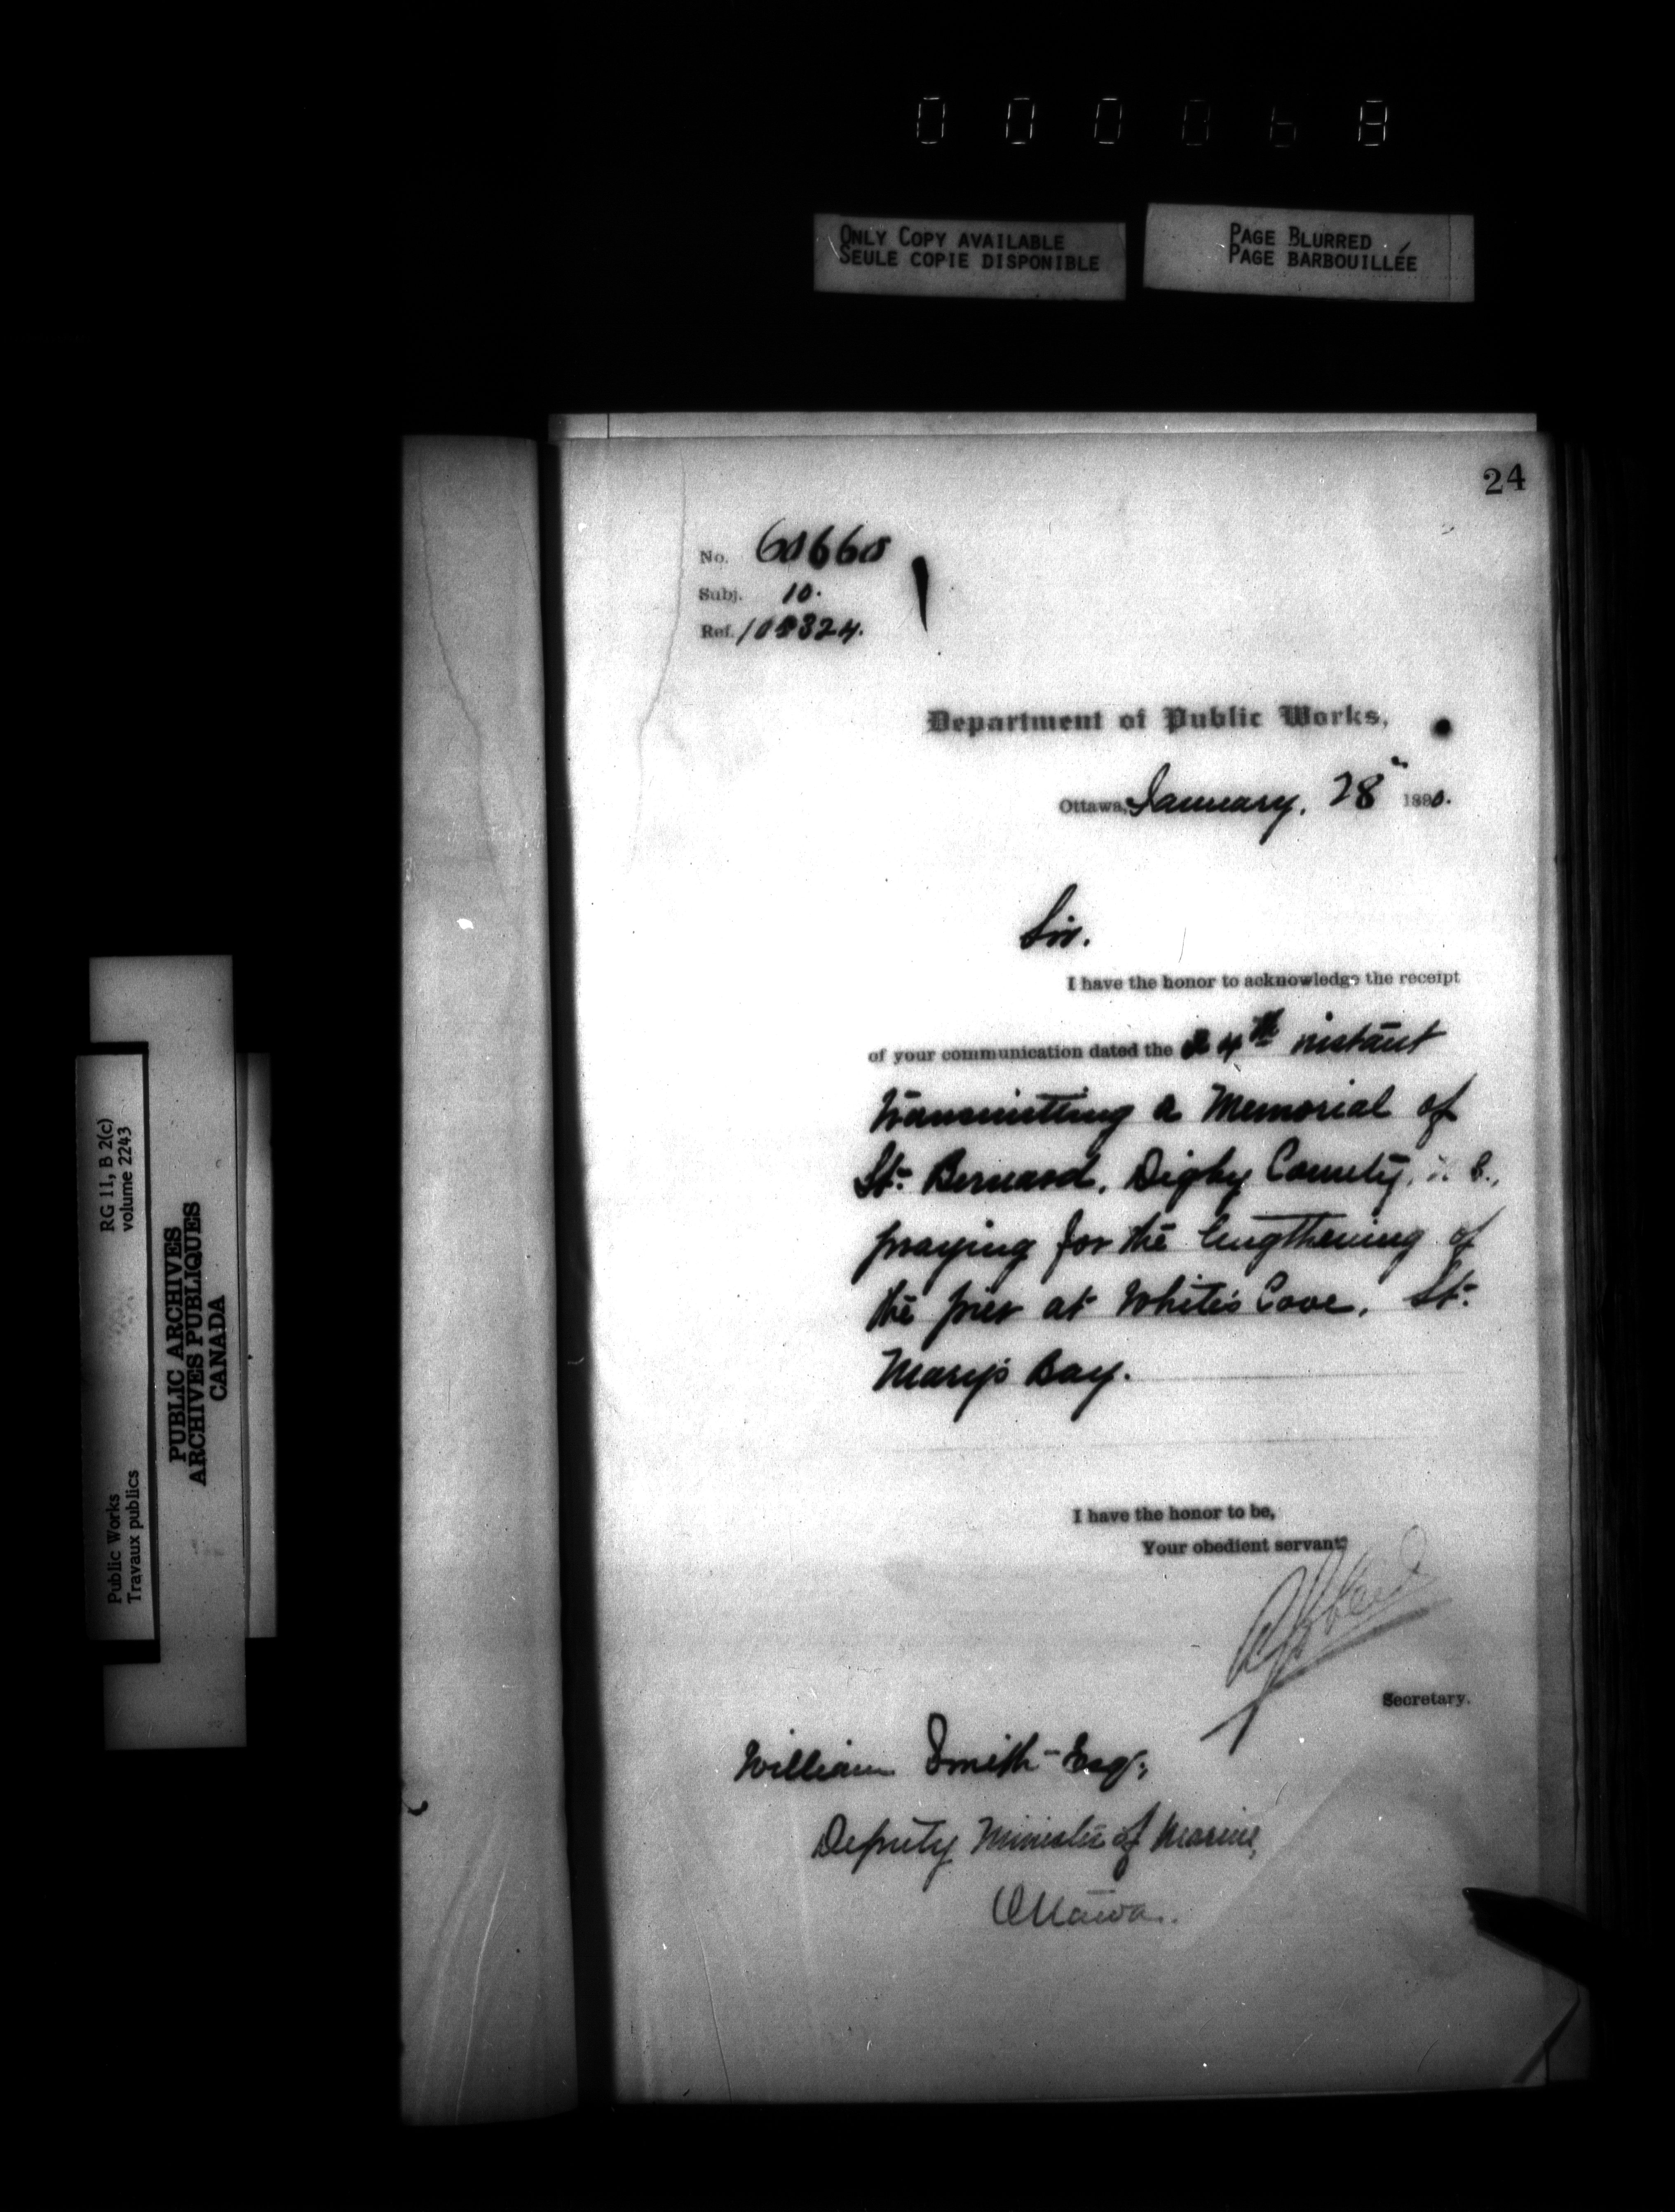 ONLY COPY AVAILABLE
SEULE COPIE DISPONIBLE
PAGE BLURRED
PAGE BARBOUILLÉE
24
No. 60660
Subj. 10.
Ref.
Department of Public Works,
Ottawa, January, 28" 1890.
Sir.
I have the honor to acknowledge the receipt
of your communication dated the 24th instant
transmitting a Memorial of
St. Bernard, Digby County,
praying for the lengthening of
the pier at White's Cove, St.
Mary's Bay.
I have the honor to be,
Your obedient servant
Secretary.
William Smith Esq.,
Deputy Minister of Marine,
Ottawa.
RG 11, B 2(c)
volume 2243
Public Works
Travaux publics
PUBLIC ARCHIVES
ARCHIVES PUBLIQUES
CANADA